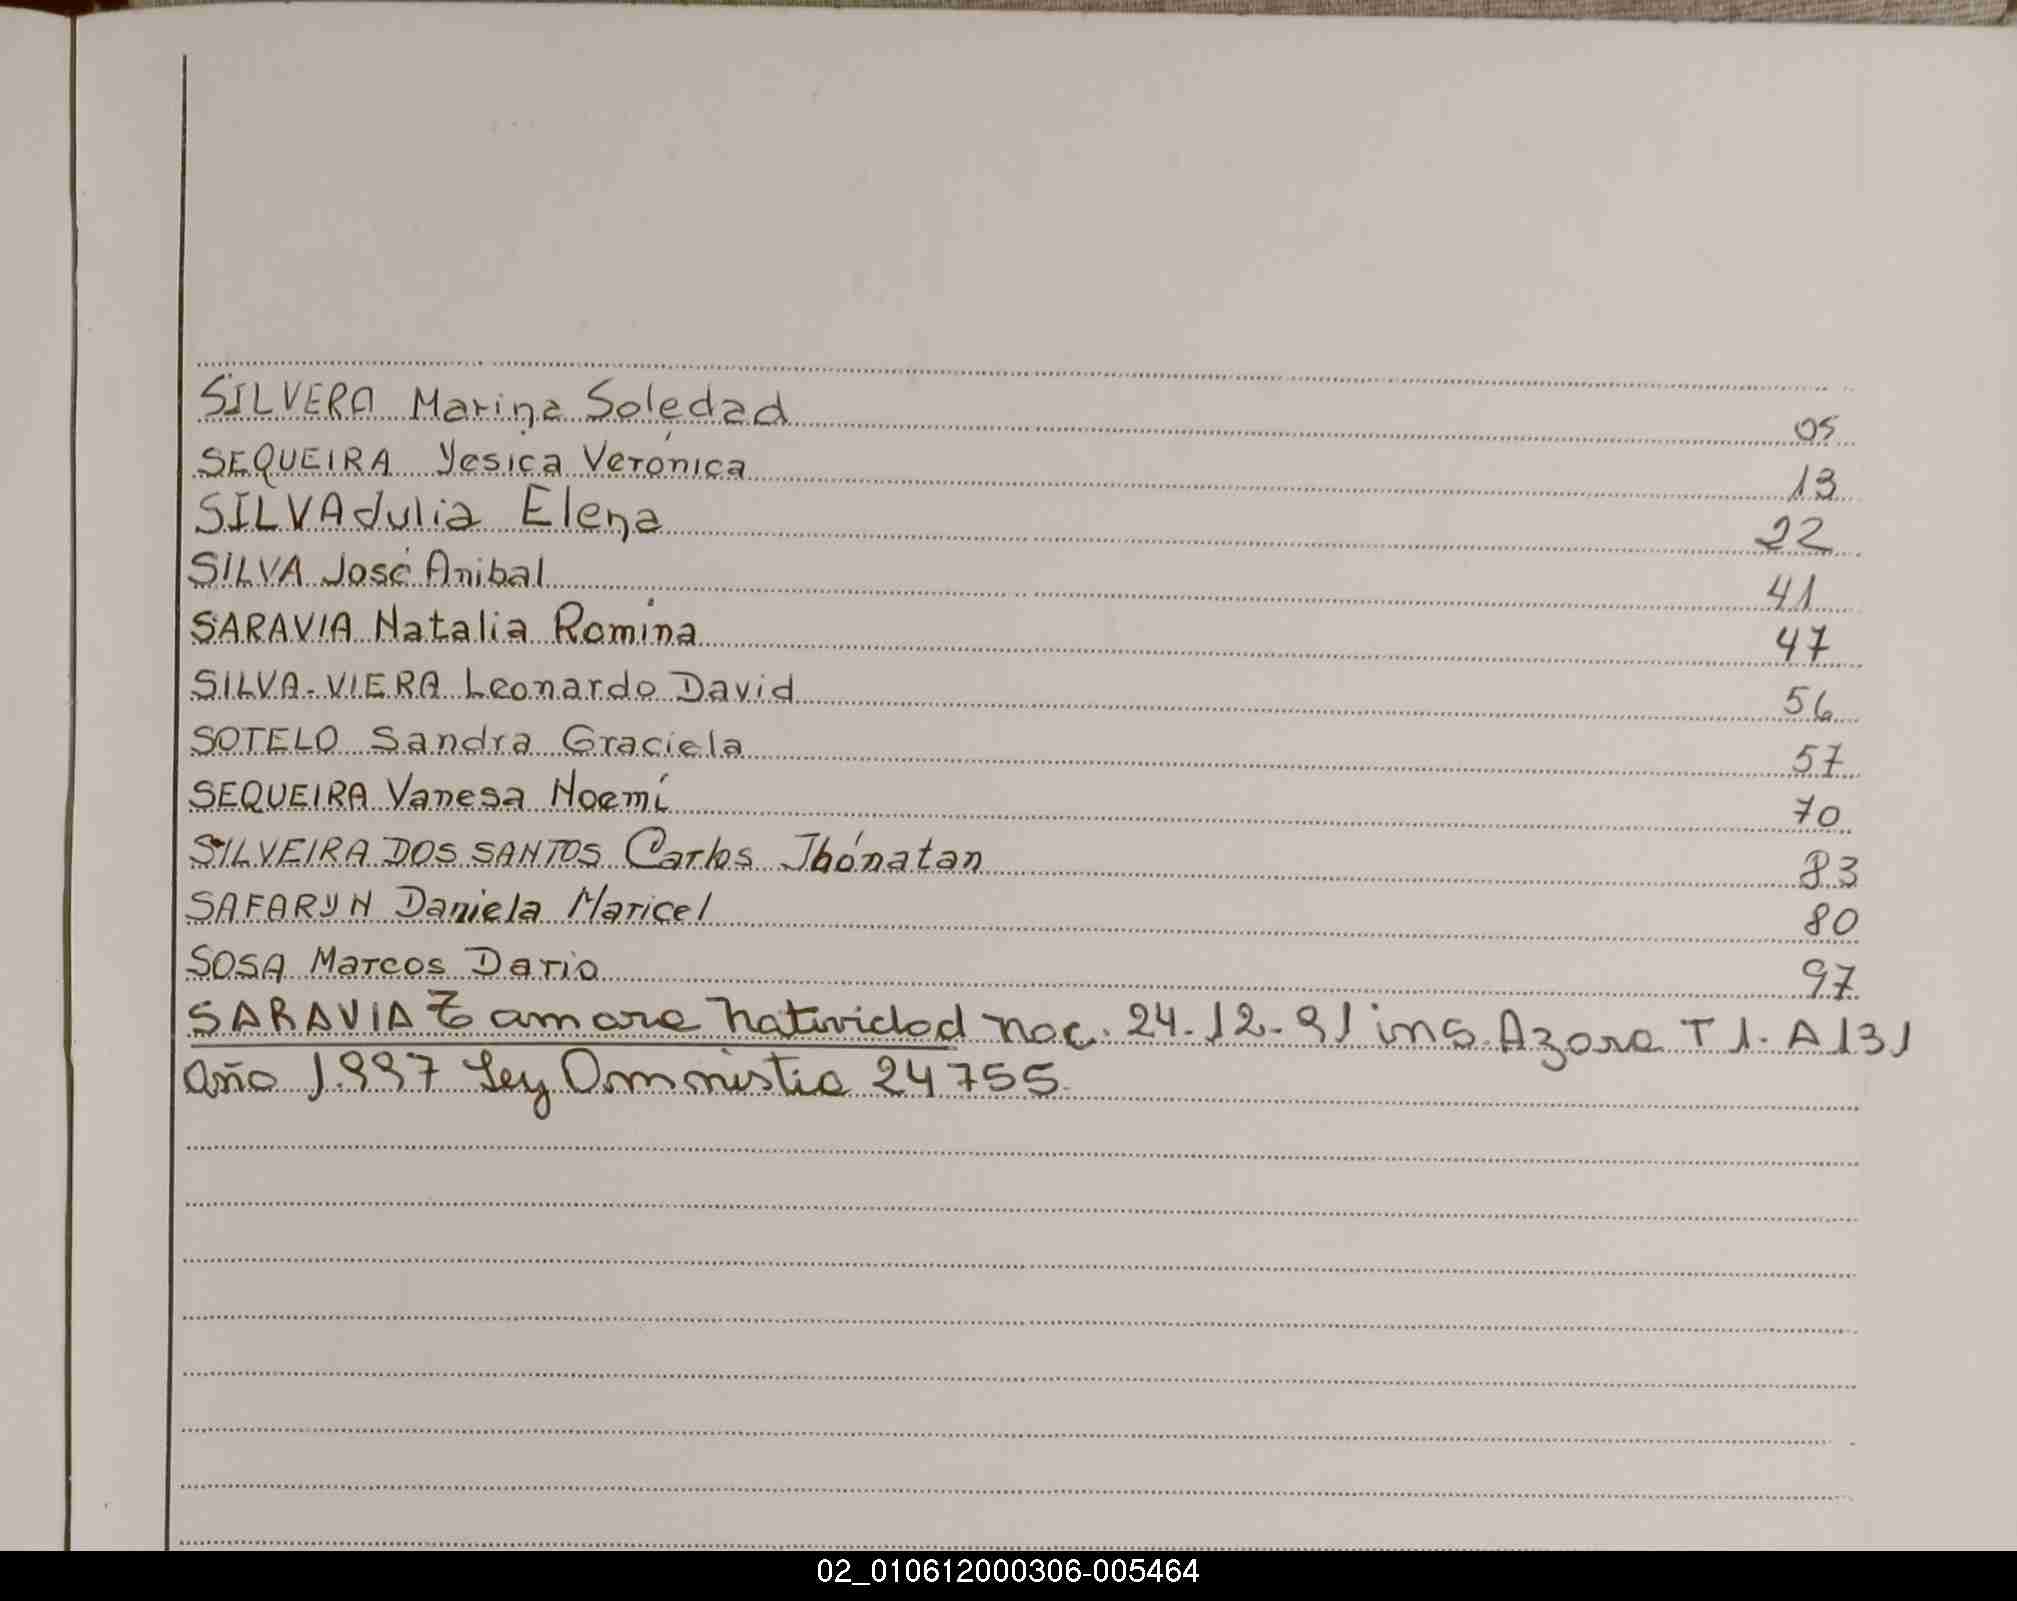 SILVERA Marina Soledad 05
SEQUEIRA Yesica Verónica 13
SILVA Julia Elena 22
SILVA José Anibal 41
SARAVIA Natalia Romina 47
SILVA-VIERA Leonardo David 56
SOTELO Sandra Graciela 57
SEQUEIRA Vanesa Noemí 70
SILVEIRA DOS SANTOS Carlos Jhónatan 83
SAFARYN Daniela Maricel 80
SOSA Marcos Dario 97
SARAVIA Tamara Natividad nac. 24-12-91 ins. Azara T1. A131
año 1.997 Ley Amnistia 24755
02_010612000306-005464